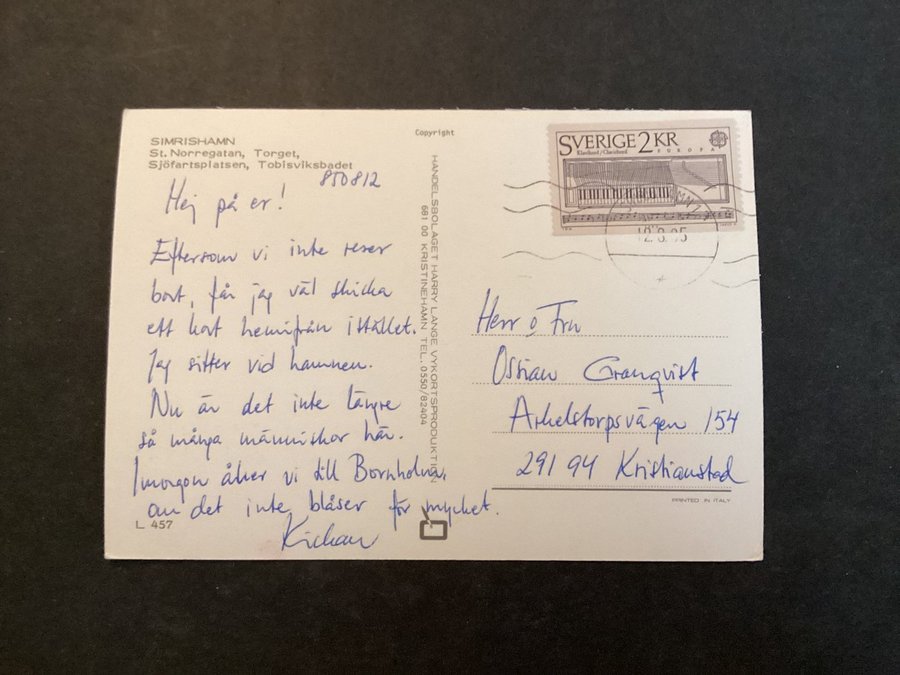 SIMRISHAMN
St. Norregatan, Torget,
Sjöfartsplatsen, Tobisviksbadet
850812
Hej på er!
Eftersom vi inte reser
bort, får jag väl skicka
ett kort hemifrån istället.
Jag sitter vid hamnen.
Nu är det inte längre
så många människor här.
Imorgon åker vi till Bornholm,
om det inte blåser för mycket.
Kickan
L 457
Copyright
HANDELSBOLAGET HARRY LANGE VYKORTSPRODUKTION
681 00 KRISTINEHAMN TEL. 0550/82404
SVERIGE 2 KR
Klavikord/Clavichord EUROPA
12.8.85
Herr o Fru
Ossian Granqvist
Arkelstorpsvägen 154
291 94 Kristianstad
PRINTED IN ITALY